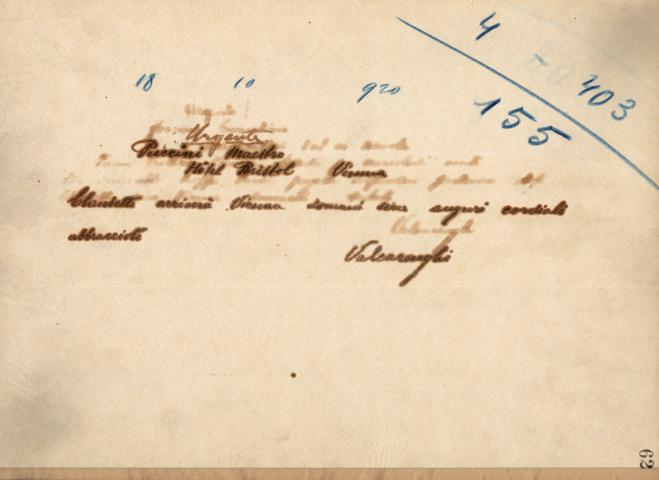 4
403
155
18 10 920
Urgente
Puccini Maestro
Hôtel Bristol Vienna
Clausetti arriverà Vienna domani sera auguri cordiali
abbraccioti
Valcarenghi
62